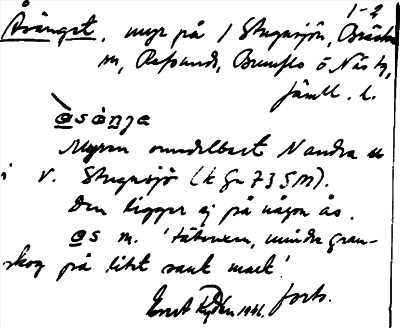 1-2
Åsänget, myr på 1 Stugusjön, Bräcke
m, Refsunds, Brunflo o Näs tg,
Jämtl. l.
åsäŋe
Myren omedelbart N andra u
i V. Stugusjö (k Gn 73 5M).
Den ligger ej på någon ås.
ås m. 'tätvuxen, mindre gran-
skog på litet sank mark'.
forts.